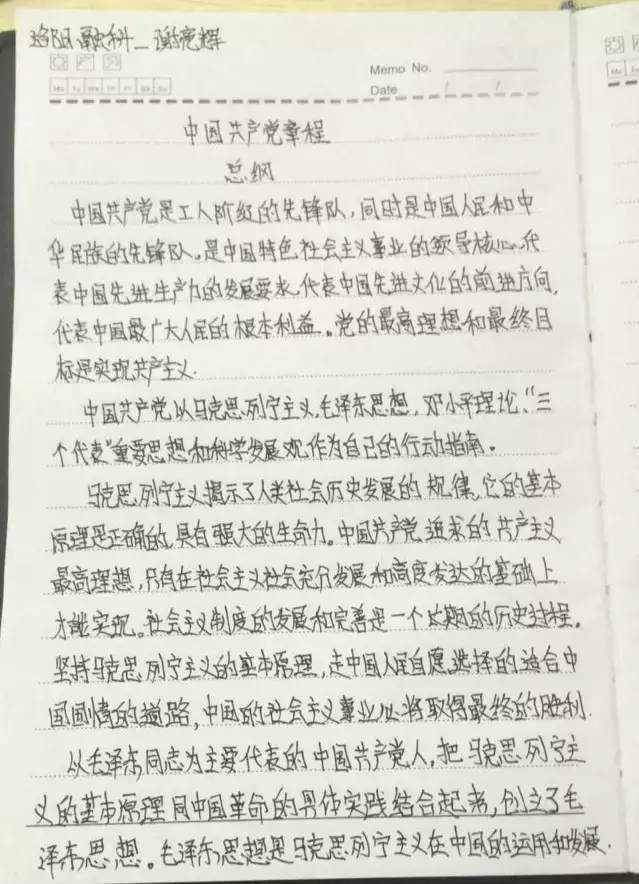 洛阳融科_谢亮辉
Memo No.
Mo Tu We Th Fr Sa Su
Date / /
中国共产党章程
总纲
中国共产党是工人阶级的先锋队,同时是中国人民和中
华民族的先锋队,是中国特色社会主义事业的领导核心,代
表中国先进生产力的发展要求,代表中国先进文化的前进方向,
代表中国最广大人民的根本利益。党的最高理想和最终目
标是实现共产主义.
中国共产党以马克思列宁主义,毛泽东思想,邓小平理论、“三
个代表”重要思想和科学发展观作为自己的行动指南。
马克思列宁主义揭示了人类社会历史发展的规律,它的基本
原理是正确的,具有强大的生命力。中国共产党追求的共产主义
最高理想,只有在社会主义社会充分发展和高度发达的基础上
才能实现。社会主义制度的发展和完善是一个长期的历史过程。
坚持马克思列宁主义的基本原理,走中国人民自愿选择的适合中
国国情的道路,中国的社会主义事业必将取得最终的胜利.
以毛泽东同志为主要代表的中国共产党人,把马克思列宁主
义的基本原理同中国革命的具体实践结合起来,创立了毛
泽东思想。毛泽东思想是马克思列宁主义在中国的运用和发展.